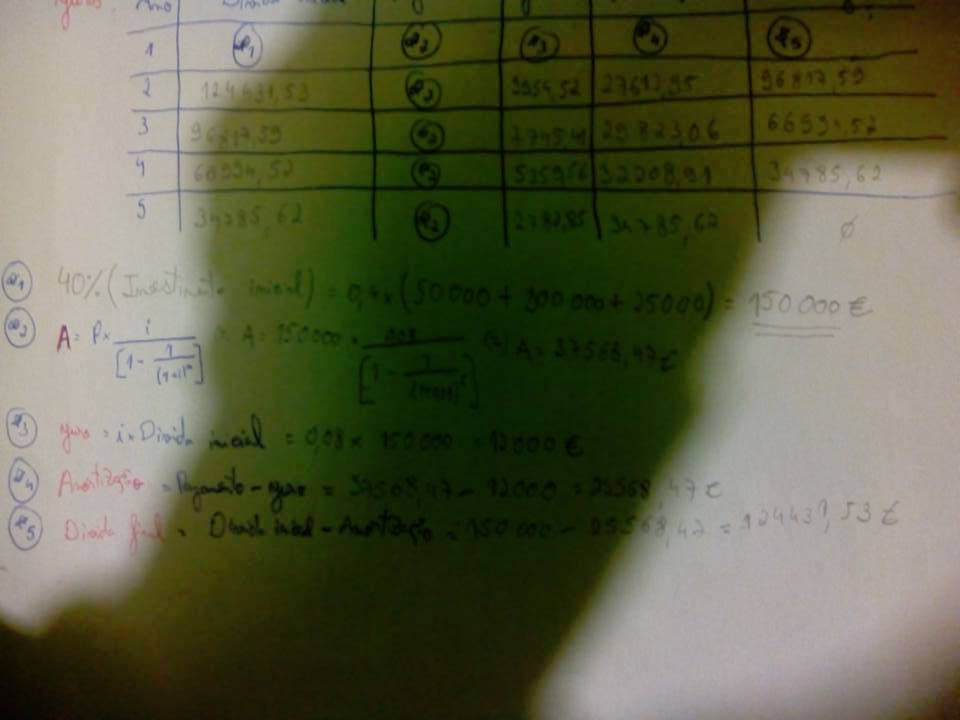 juros. Ano Dívida inicial
1 #1 #2 #3 #4 #5
2 124431,53 #2 9954,52 27613,95 96817,59
3 96817,59 #2 7745,41 29823,06 66994,52
4 66994,52 #2 5359,56 32208,91 34785,62
5 34785,62 #2 2782,85 34785,62 ∅
#1 40% (Investimento inicial) = 0,4 × (50 000 + 300 000 + 25 000) = 150 000 €
#2 A = P × i / [1 - 1/(1+i)^n] A = 150 000 × 0,08 / [1 - 1 / ] A = 37568,47 €
#3 juro = i × Dívida inicial = 0,08 × 150 000 = 12 000 €
#4 Amortização = Pagamento - juro = 37568,47 - 12000 = 25568,47 €
#5 Dívida final = Dívida inicial - Amortização = 150 000 - 25568,47 = 124431,53 €